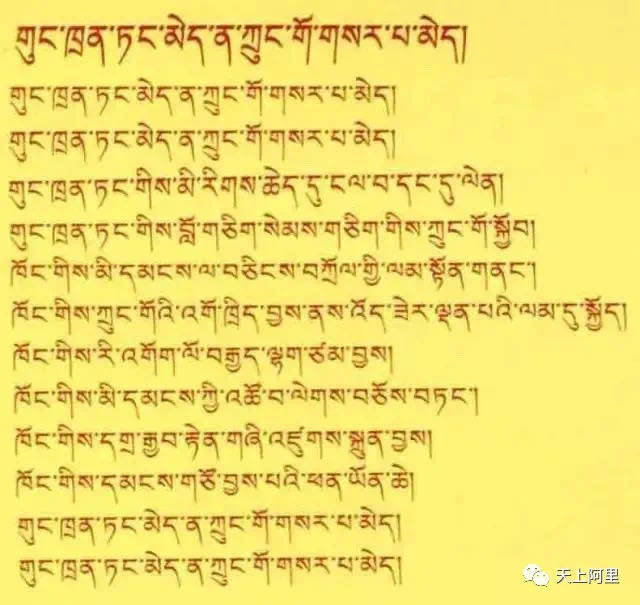 གུང་ཁྲན་ཏང་མེད་ན་ཀྲུང་གོ་གསར་པ་མེད།
གུང་ཁྲན་ཏང་མེད་ན་ཀྲུང་གོ་གསར་པ་མེད།
གུང་ཁྲན་ཏང་མེད་ན་ཀྲུང་གོ་གསར་པ་མེད།
གུང་ཁྲན་ཏང་གིས་མི་རིགས་ཆེད་དུ་ངལ་བ་དང་དུ་ལེན།
གུང་ཁྲན་ཏང་གིས་བློ་གཅིག་སེམས་གཅིག་གིས་ཀྲུང་གོ་སྐྱོབ།
ཁོང་གིས་མི་དམངས་ལ་བཅིངས་བཀྲོལ་གྱི་ལམ་སྟོན་གནང་།
ཁོང་གིས་ཀྲུང་གོའི་འགོ་ཁྲིད་བྱས་ནས་འོད་ཟེར་ལྡན་པའི་ལམ་དུ་སྐྱོད།
ཁོང་གིས་རི་འགོག་ལོ་བརྒྱད་ལྷག་ཙམ་བྱས།
ཁོང་གིས་མི་དམངས་ཀྱི་འཚོ་བ་ལེགས་བཅོས་བཏང་།
ཁོང་གིས་དགྲ་རྒྱབ་རྟེན་གཞི་འཛུགས་སྐྲུན་བྱས།
ཁོང་གིས་དམངས་གཙོ་བྱས་པའི་ཕན་ཡོན་ཆེ།
གུང་ཁྲན་ཏང་མེད་ན་ཀྲུང་གོ་གསར་པ་མེད།
གུང་ཁྲན་ཏང་མེད་ན་ཀྲུང་གོ་གསར་པ་མེད།
天上阿里